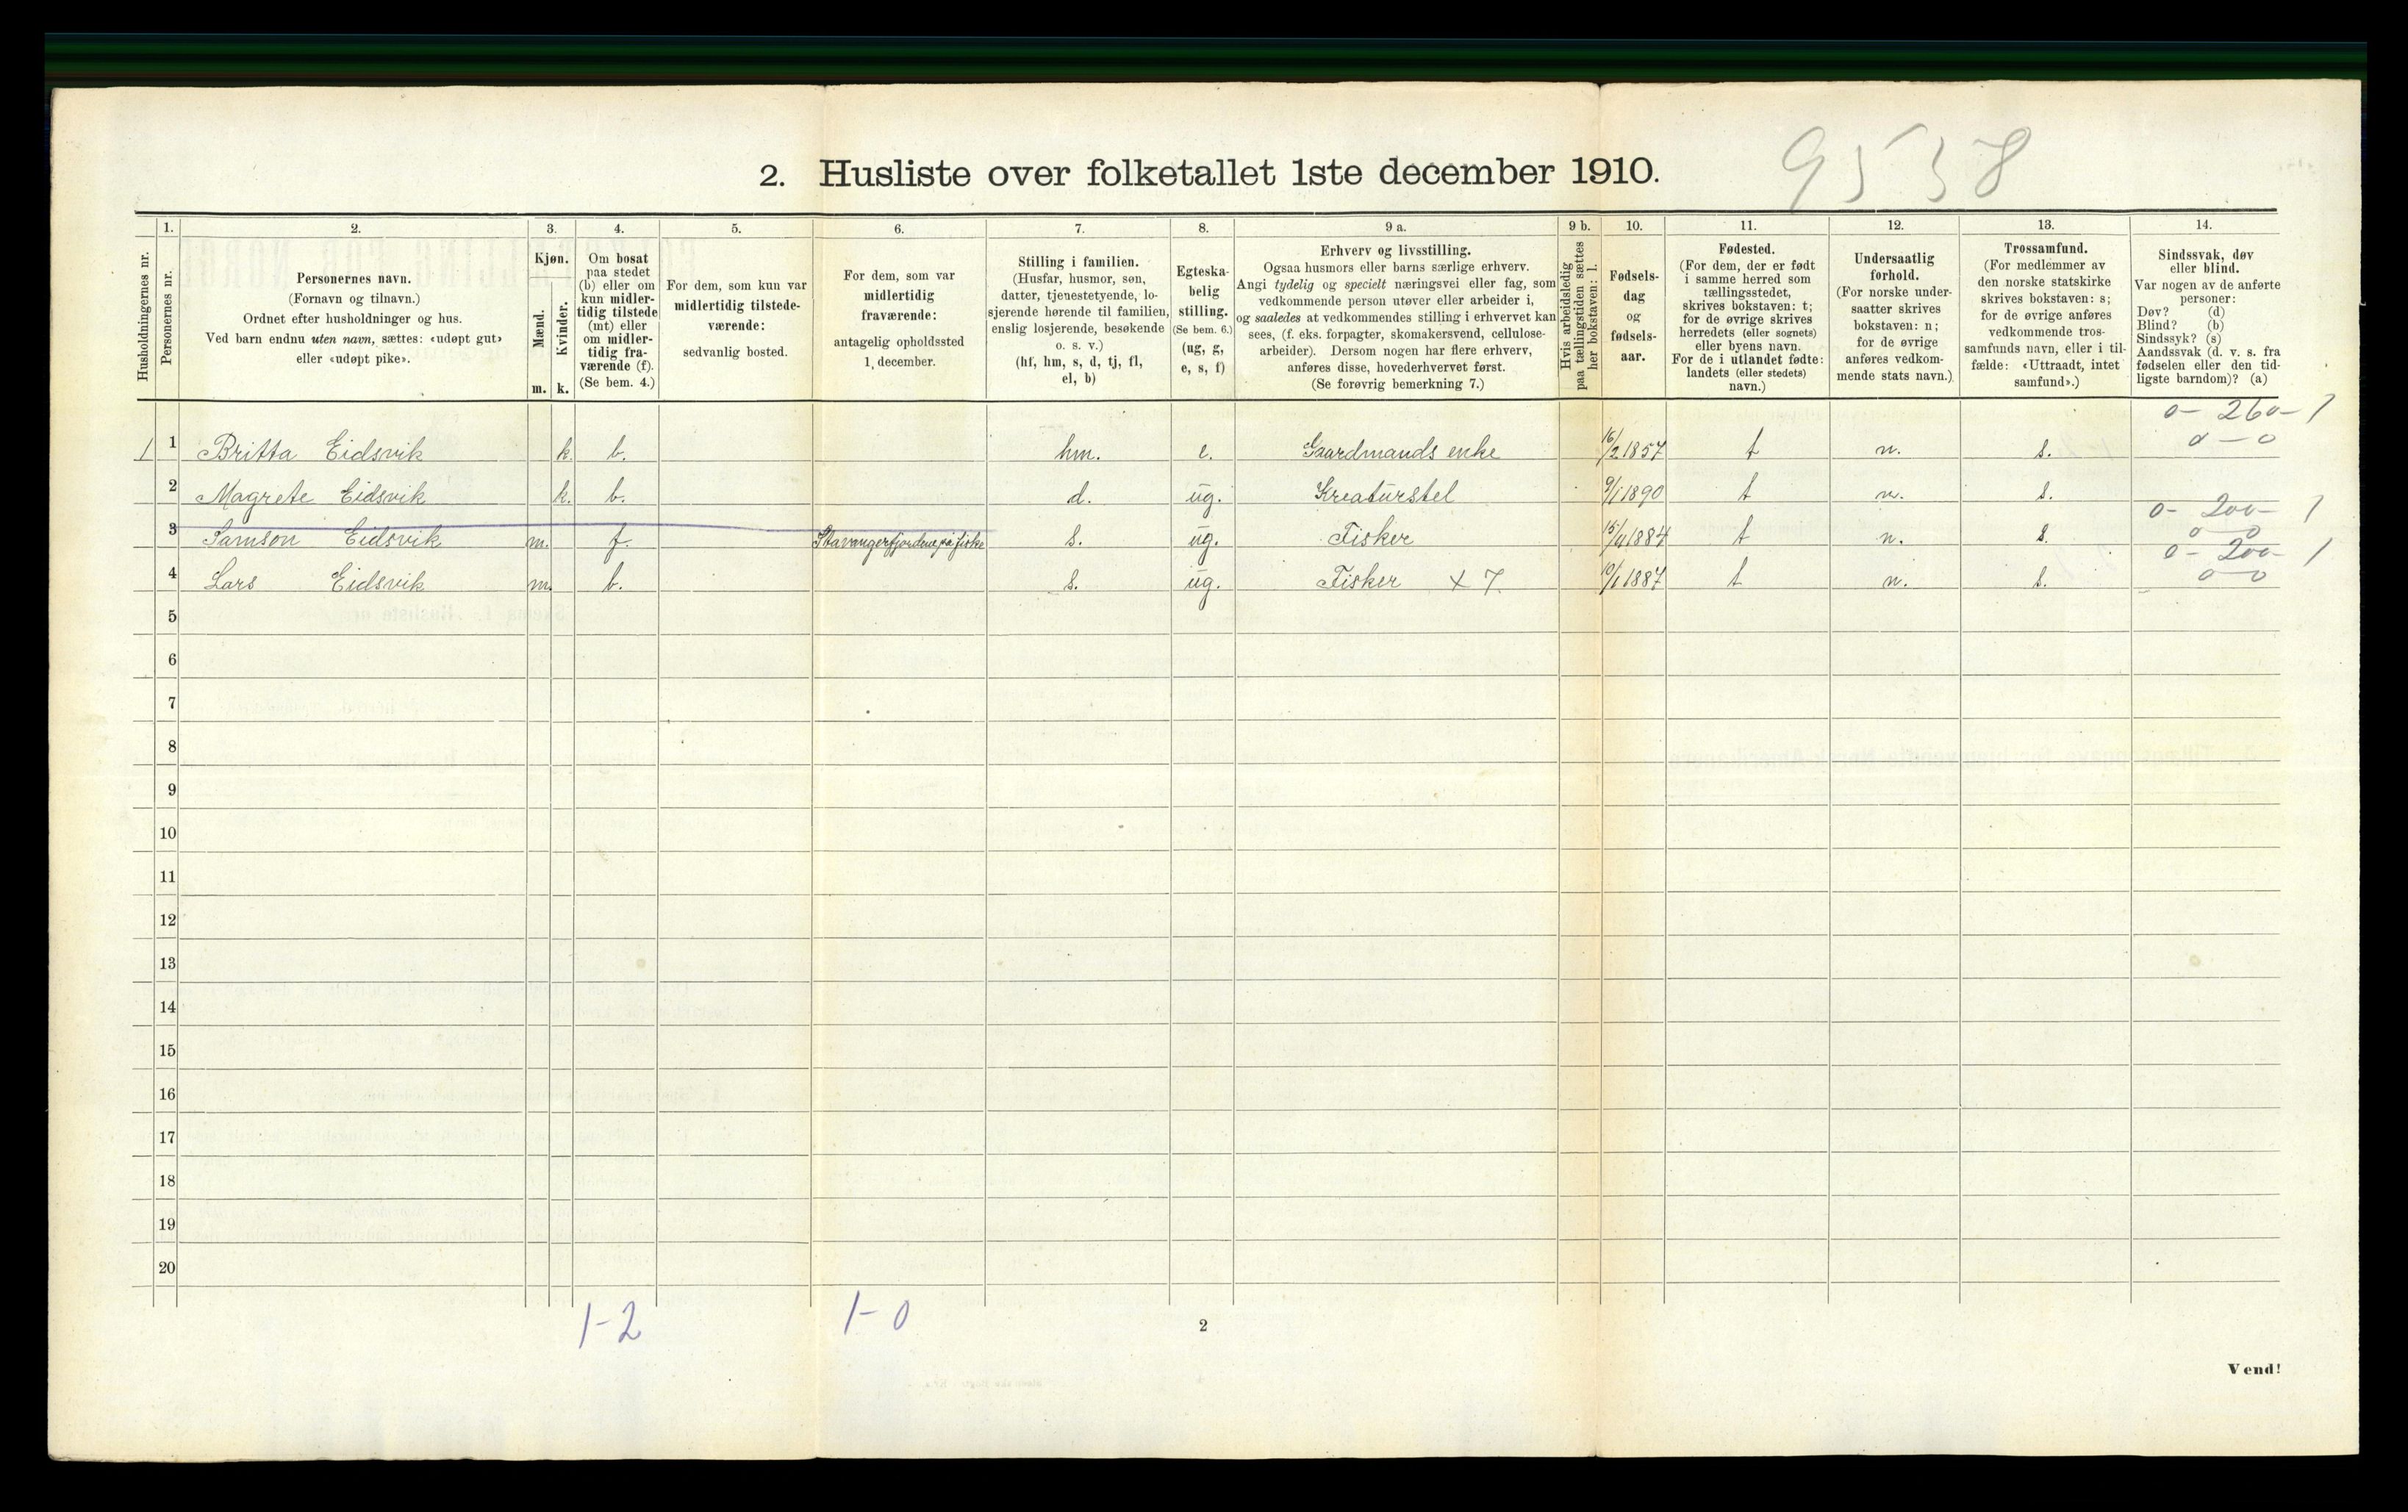 2. Husliste over folketallet 1ste december 1910.
9538
Husholdningernes nr.
1. Personernes nr.
2. Personernes navn.
(Fornavn og tilnavn.)
Ordnet efter husholdninger og hus.
Ved barn endnu uten navn, sættes: «udøpt gut»
eller «udøpt pike».
3. Kjøn.
Mænd. m.
Kvinder. k.
4. Om bosat
paa stedet
(b) eller om
kun midler-
tidig tilstede
(mt) eller
om midler-
tidig fra-
værende (f).
(Se bem. 4.)
5. For dem, som kun var
midlertidig tilstede-
værende:
sedvanlig bosted.
6. For dem, som var
midlertidig
fraværende:
antagelig opholdssted
1. december.
7. Stilling i familien.
(Husfar, husmor, søn,
datter, tjenestetyende, lo-
sjerende hørende til familien,
enslig losjerende, besøkende
o. s. v.)
(hf, hm, s, d, tj, fl,
el, b)
8. Egteska-
belig
stilling.
(Se bem. 6.)
(ug, g,
e, s, f)
9 a. Erhverv og livsstilling.
Ogsaa husmors eller barns særlige erhverv.
Angi tydelig og specielt næringsvei eller fag, som
vedkommende person utøver eller arbeider i,
og saaledes at vedkommendes stilling i erhvervet kan
sees, (f. eks. forpagter, skomakersvend, cellulose-
arbeider). Dersom nogen har flere erhverv,
anføres disse, hovederhvervet først.
(Se forøvrig bemerkning 7.)
9 b. Hvis arbeidsledig
paa tællingstiden sættes
her bokstaven: l.
10. Fødsels-
dag
og
fødsels-
aar.
11. Fødested.
(For dem, der er født
i samme herred som
tællingsstedet,
skrives bokstaven: t;
for de øvrige skrives
herredets (eller sognets)
eller byens navn.
For de i utlandet fødte:
landets (eller stedets)
navn.)
12. Undersaatlig
forhold.
(For norske under-
saatter skrives
bokstaven: n;
for de øvrige
anføres vedkom-
mende stats navn.)
13. Trossamfund.
(For medlemmer av
den norske statskirke
skrives bokstaven: s;
for de øvrige anføres
vedkommende tros-
samfunds navn, eller i til-
fælde: «Uttraadt, intet
samfund».)
14. Sindssvak, døv
eller blind.
Var nogen av de anførte
personer:
Døv? (d)
Blind? (b)
Sindssyk? (s)
Aandssvak (d. v. s. fra
fødselen eller den tid-
ligste barndom)? (a)
0- 260- 1
1 1 Britta Eidsvik k. b. hm. e. Gaardmands enke 16/2 1857 t n. s. 0-0
2 Magrete Eidsvik k. b. d. ug. Kreaturstel 9/1 1890 t n. s.
0- 200- 1
3 Samson Eidsvik m. f. Stavangerfjordene på fiske s. ug. Fisker 15/4 1884 t n. s. 0-0
0- 200- 1
4 Lars Eidsvik m. b. s. ug. Fisker x 7 10/1 1887 t n. s. 0-0
5
6
7
8
9
10
11
12
13
14
15
16
17
18
19
20
1-2 1-0
2
Vend!